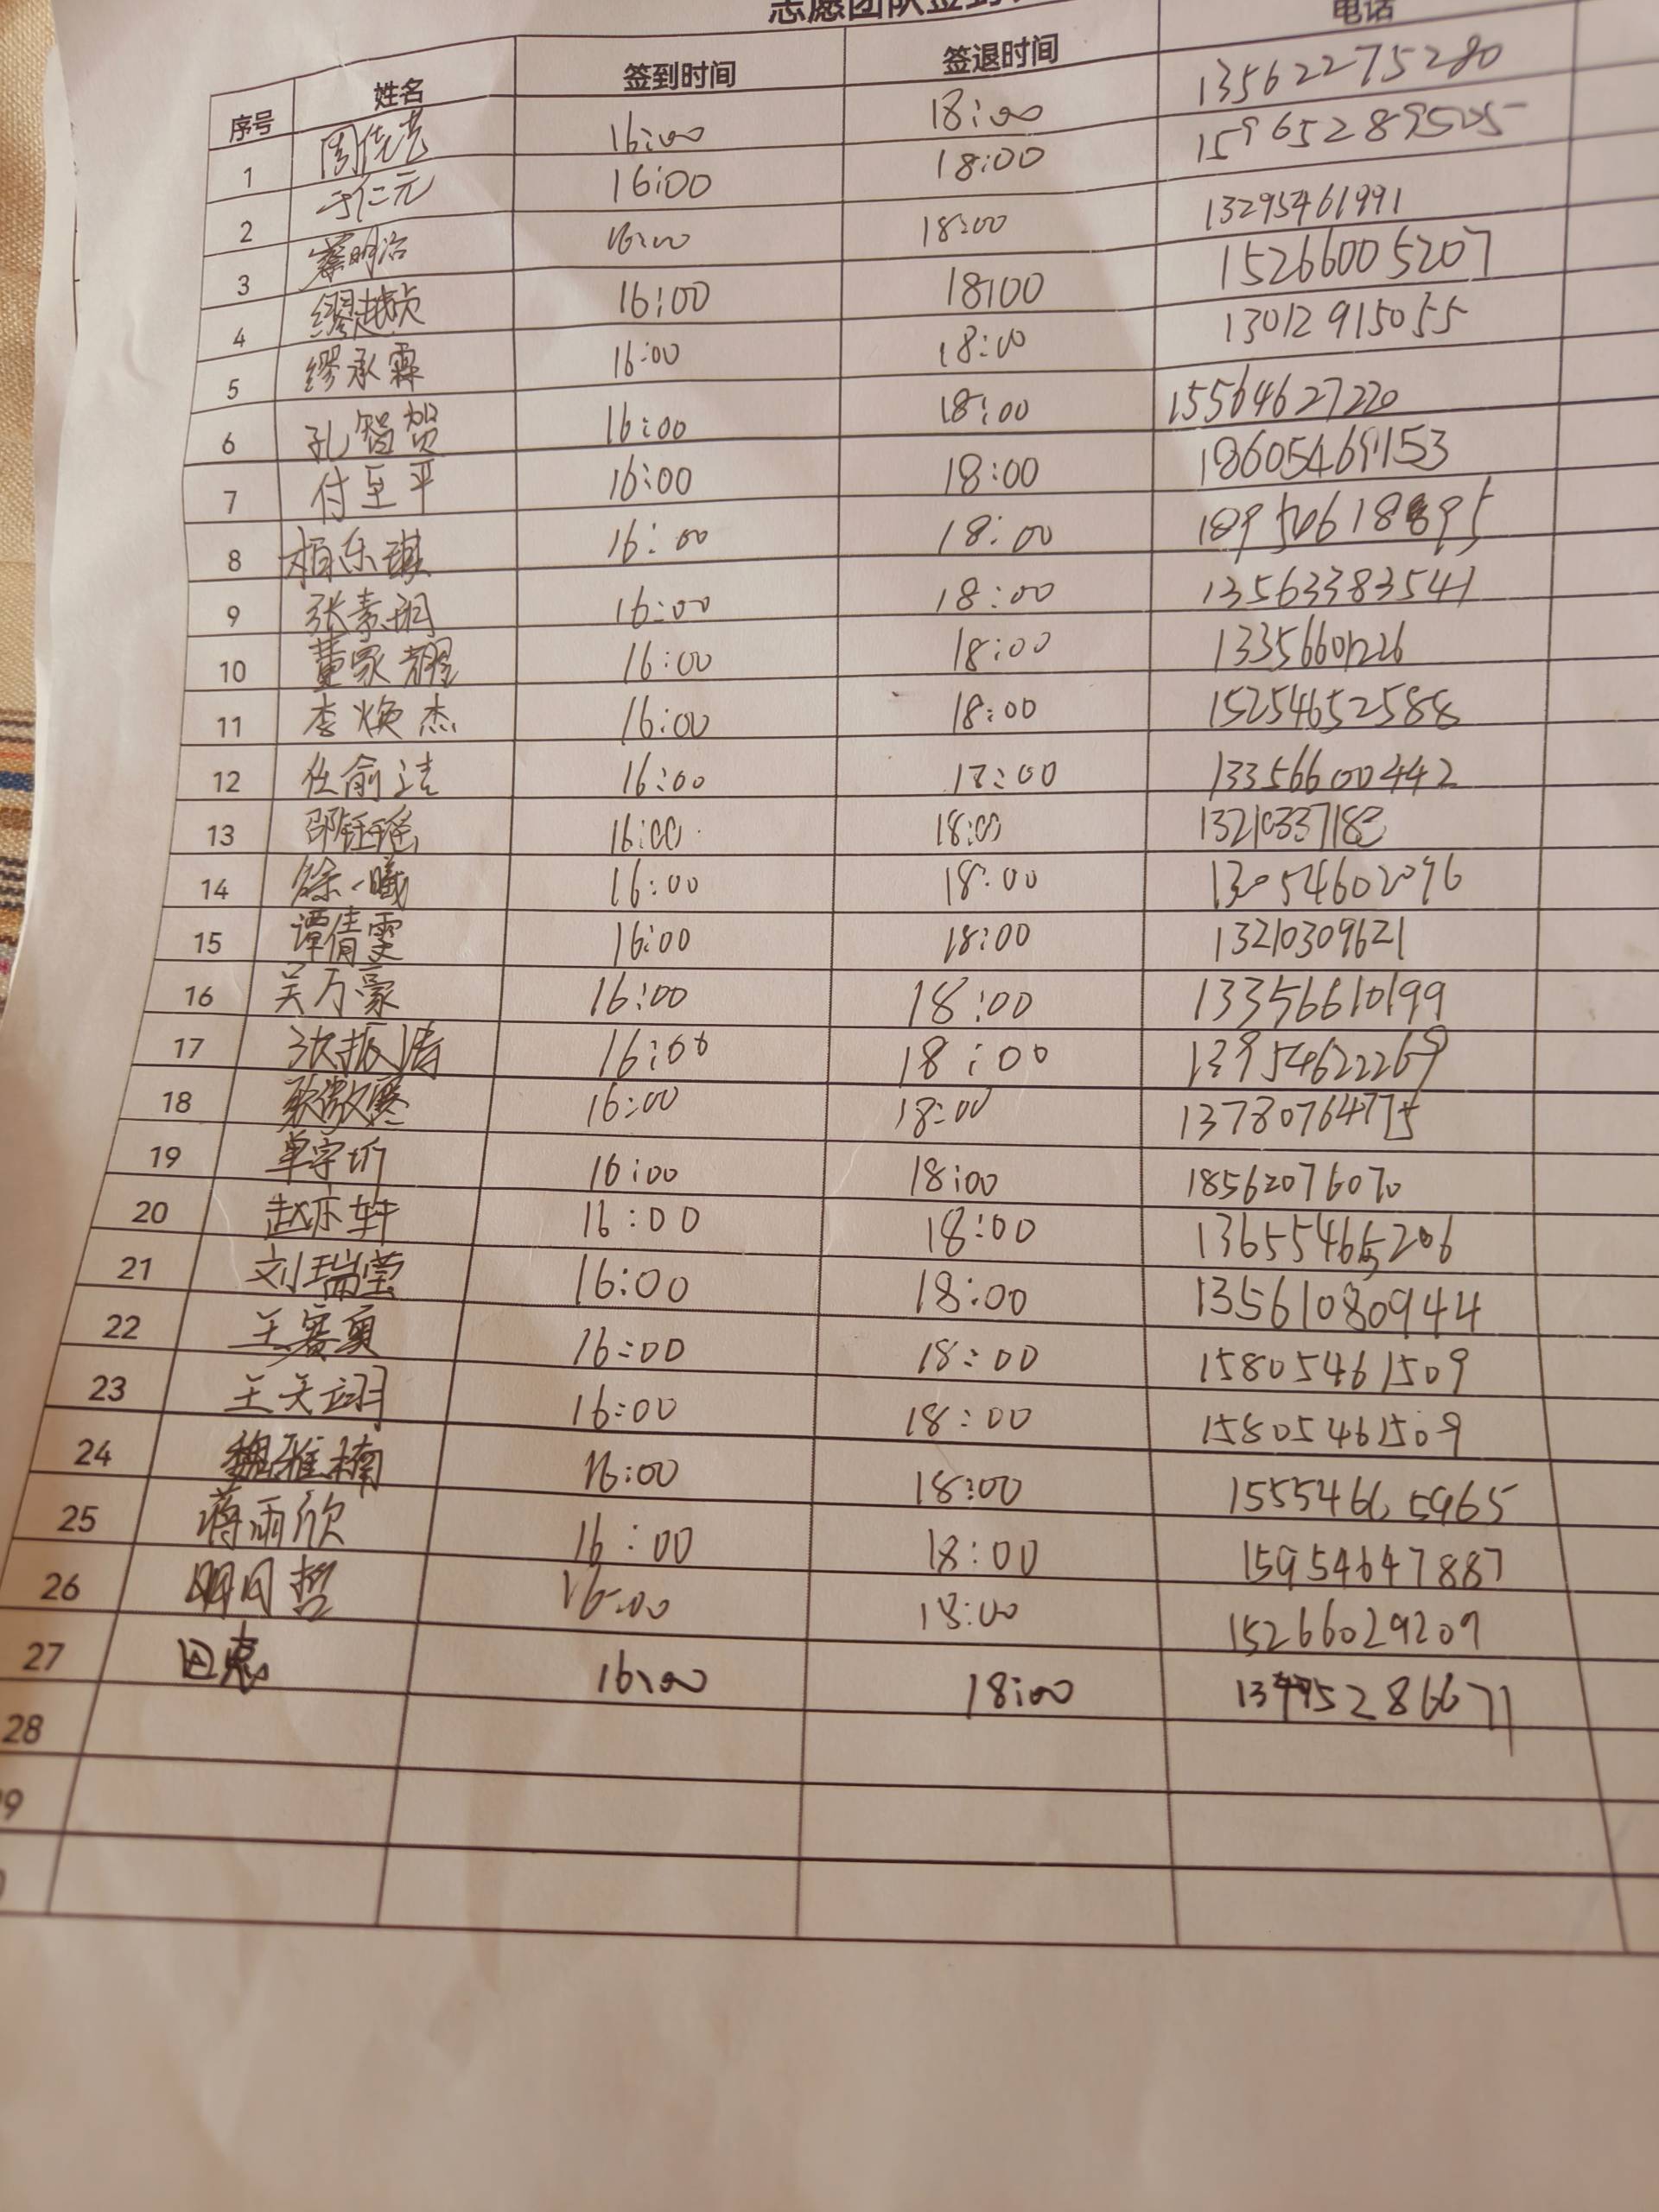 志愿团队签到
序号 姓名 签到时间 签退时间 电话
1 16:00 18:00 13562275280
2 于仁元 16:00 18:00
3 蔡明治 16:00 18:00 13295461991
4 缪越欣 16:00 18:00 15266005207
5 缪承霖 16:00 18:00 13012915055
6 孔智贺 16:00 18:00 15564627220
7 付至平 16:00 18:00 18605469153
8 18:00 16:00
9 张素铜 16:00 18:00 13563383541
10 董家耀 16:00 18:00 13356601226
11 李焕杰 16:00 18:00 15254652588
12 任俞洁 16:00 18:00 13356600442
13 邵钰瑶 16:00 18:00 13210337183
14 徐一曦 16:00 18:00 13054602096
15 谭倩雯 16:00 18:00 13210309621
16 吴万豪 16:00 18:00 13356610199
17 张振涛 16:00 18:00 13954622269
18 16:00 18:00 13780764775
19 单宇圻 16:00 18:00 18562076070
20 赵乐轩 16:00 18:00 13655465206
21 刘瑞莹 16:00 18:00 13561080944
22 王赛奥 16:00 18:00 15805461509
23 王天翊 16:00 18:00 15805461509
24 魏雅楠 16:00 18:00 15554665965
25 蒋雨欣 16:00 18:00 15954647887
26 明月哲 16:00 18:00 15266029209
27 田惠 16:00 18:00
28